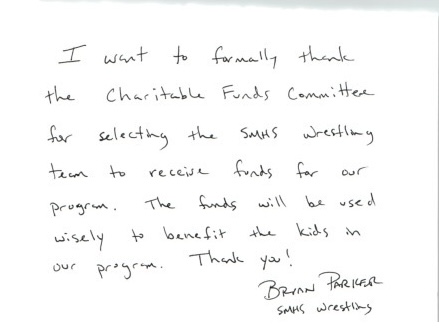 I want to formally thank
the Charitable Funds Committee
for selecting the SMHS wrestling
team to receive funds for our
program. The funds will be used
wisely to benefit the kids in
our program. Thank you!
Bryan Parker
SMHS Wrestling